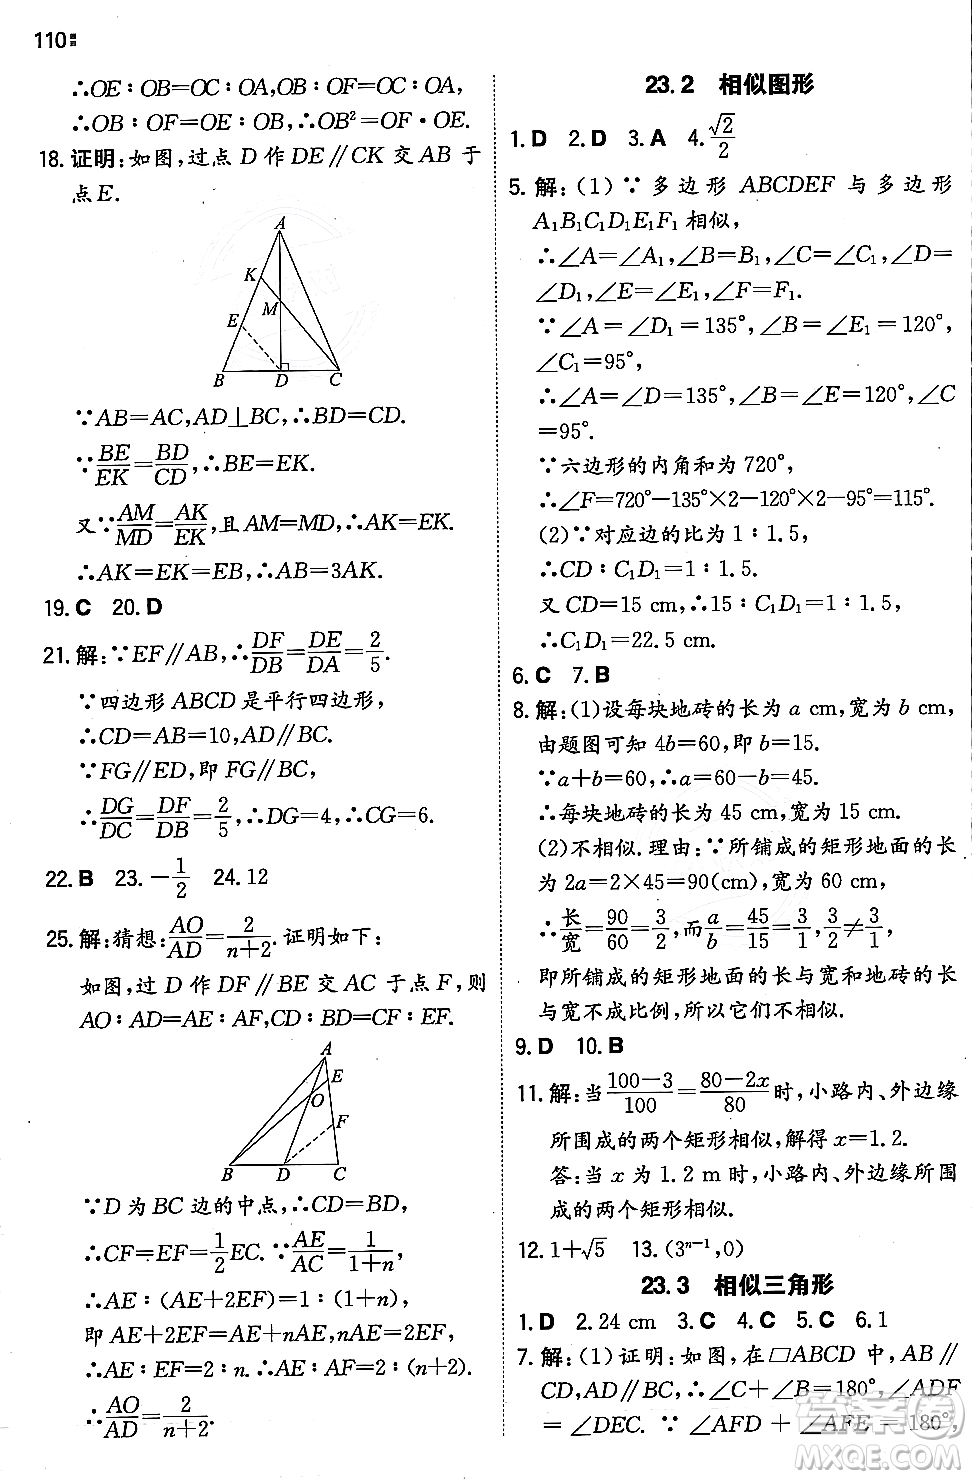 110
∴OE∶OB=OC∶OA,OB∶OF=OC∶OA,
∴OB∶OF=OE∶OB,∴OB²=OF·OE.
18.证明:如图,过点 D 作 DE∥CK 交 AB 于
点E.
A
K
M
E
B D C
∵AB=AC,AD⊥BC,∴BD=CD.
∵BE/EK=BD/CD,∴BE=EK.
又∵AM/MD=AK/EK,且AM=MD,∴AK=EK.
∴AK=EK=EB,∴AB=3AK.
19.C 20.D
21.解:∵EF∥AB,∴DF/DB=DE/DA=2/5.
∵四边形 ABCD 是平行四边形,
∴CD=AB=10,AD∥BC.
∵FG∥ED,即 FG∥BC,
∴DG/DC=DF/DB=2/5,∴DG=4,∴CG=6.
22.B 23.-1/2 24.12
25.解:猜想:AO/AD=2/(n+2).证明如下:
如图,过 D 作 DF∥BE 交 AC 于点 F,则
AO∶AD=AE∶AF,CD∶BD=CF∶EF.
A
E
O
F
B D C
∵D 为 BC 边的中点,∴CD=BD,
∴CF=EF=1/2EC.∵AE/AC=1/(1+n),
∴AE∶(AE+2EF)=1∶(1+n),
即 AE+2EF=AE+nAE,
∴AE∶EF=2∶n.∴AE∶AF=2∶(n+2).
∴AO/AD=2/(n+2).
23.2 相似图形
1.D 2.D 3.A 4.√2/2
5.解:(1)∵多边形 ABCDEF 与多边形
A₁B₁C₁D₁E₁F₁ 相似,
∴∠A=∠A₁,∠B=B₁,∠C=∠C₁,∠D=
∠D₁,∠E=∠E₁,∠F=F₁.
∵∠A=∠D₁=135°,∠B=∠E₁=120°,
∠C₁=95°,
∴∠A=∠D=135°,∠B=∠E=120°,∠C
=95°.
∵六边形的内角和为 720°,
∴∠F=720°-135°×2-120°×2-95°=115°.
(2)∵对应边的比为 1∶1.5,
∴CD∶C₁D₁=1∶1.5.
又 CD=15 cm,∴15∶C₁D₁=1∶1.5,
∴C₁D₁=22.5 cm.
6.C 7.B
8.解:(1)设每块地砖的长为 a cm,宽为 b cm,
由题图可知 4b=60,即 b=15.
∵a+b=60,∴a=60-b=45.
∴每块地砖的长为 45 cm,宽为 15 cm.
(2)不相似.理由:∵所铺成的矩形地面的长
为 2a=2×45=90(cm),宽为 60 cm,
∴长/宽=90/60=3/2,而a/b=45/15=3/1,3/2≠3/1,
即所铺成的矩形地面的长与宽和地砖的长
与宽不成比例,所以它们不相似.
9.D 10.B
11.解:当(100-3)/100=(80-2x)/80时,小路内、外边缘
所围成的两个矩形相似,解得 x=1.2.
答:当 x 为 1.2 m时,小路内、外边缘所围
成的两个矩形相似.
12.1+√5 13.(3ⁿ⁻¹,0)
23.3 相似三角形
1.D 2.24 cm 3.C 4.C 5.C 6.1
7.解:(1)证明:如图,在▱ABCD 中,AB∥
CD,AD∥BC,∴∠B+∠C=180°,∠ADF
=∠DEC.∵∠AFD+∠AFE=180°,